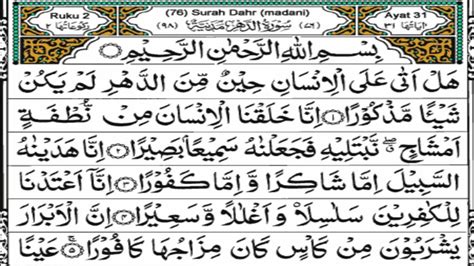 Ruku 2 (76) Surah Dahr (madani) Ayat 31
رکوعاتها ٢ (٩٨) سورة الدهر مدنية (٧٦) اٰیاتها ٣١
بِسْمِ اللّٰهِ الرَّحْمٰنِ الرَّحِيْمِ
هَلْ اَتٰى عَلَى الْاِنْسَانِ حِيْنٌ مِّنَ الدَّهْرِ لَمْ يَكُنْ
شَيْـًٔا مَّذْكُوْرًا ۝۱ اِنَّا خَلَقْنَا الْاِنْسَانَ مِنْ نُّطْفَةٍ
اَمْشَاجٍ ۖ نَّبْتَلِيْهِ فَجَعَلْنٰهُ سَمِيْعًۢا بَصِيْرًا ۝۲ اِنَّا هَدَيْنٰهُ
السَّبِيْلَ اِمَّا شَاكِرًا وَّ اِمَّا كَفُوْرًا ۝۳ اِنَّاۤ اَعْتَدْنَا
لِلْكٰفِرِيْنَ سَلٰسِلَا۟ وَ اَغْلٰلًا وَّ سَعِيْرًا ۝۴ اِنَّ الْاَبْرَارَ
يَشْرَبُوْنَ مِنْ كَاْسٍ كَانَ مِزَاجُهَا كَافُوْرًا ۝۵ عَيْنًا